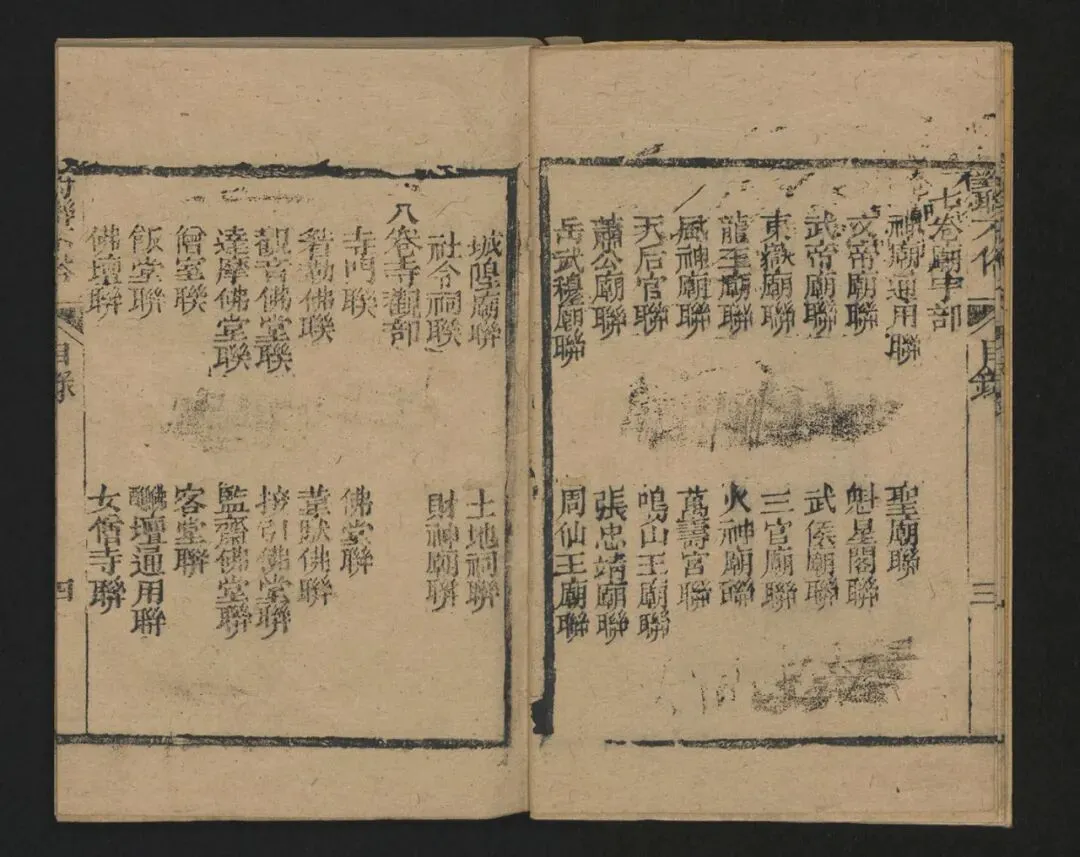 目錄 三
七卷廟宇部
神廟通用聯 聖廟聯
文帝廟聯 魁星閣聯
武帝廟聯 武侯廟聯
東嶽廟聯 三官廟聯
龍王廟聯 火神廟聯
風神廟聯 萬壽宮聯
天后宮聯 鳴山王廟聯
蕭公廟聯 張忠靖廟聯
岳武穆廟聯 周仙王廟聯
城隍廟聯 土地祠聯
社令祠聯 財神廟聯
八卷寺觀部
寺門聯 佛堂聯
彌勒佛聯 韋馱佛聯
觀音佛堂聯 接引佛堂聯
達摩佛堂聯 監齋佛堂聯
僧室聯 客堂聯
飯堂聯 醮壇通用聯
佛壇聯 女僧寺聯
目錄 四